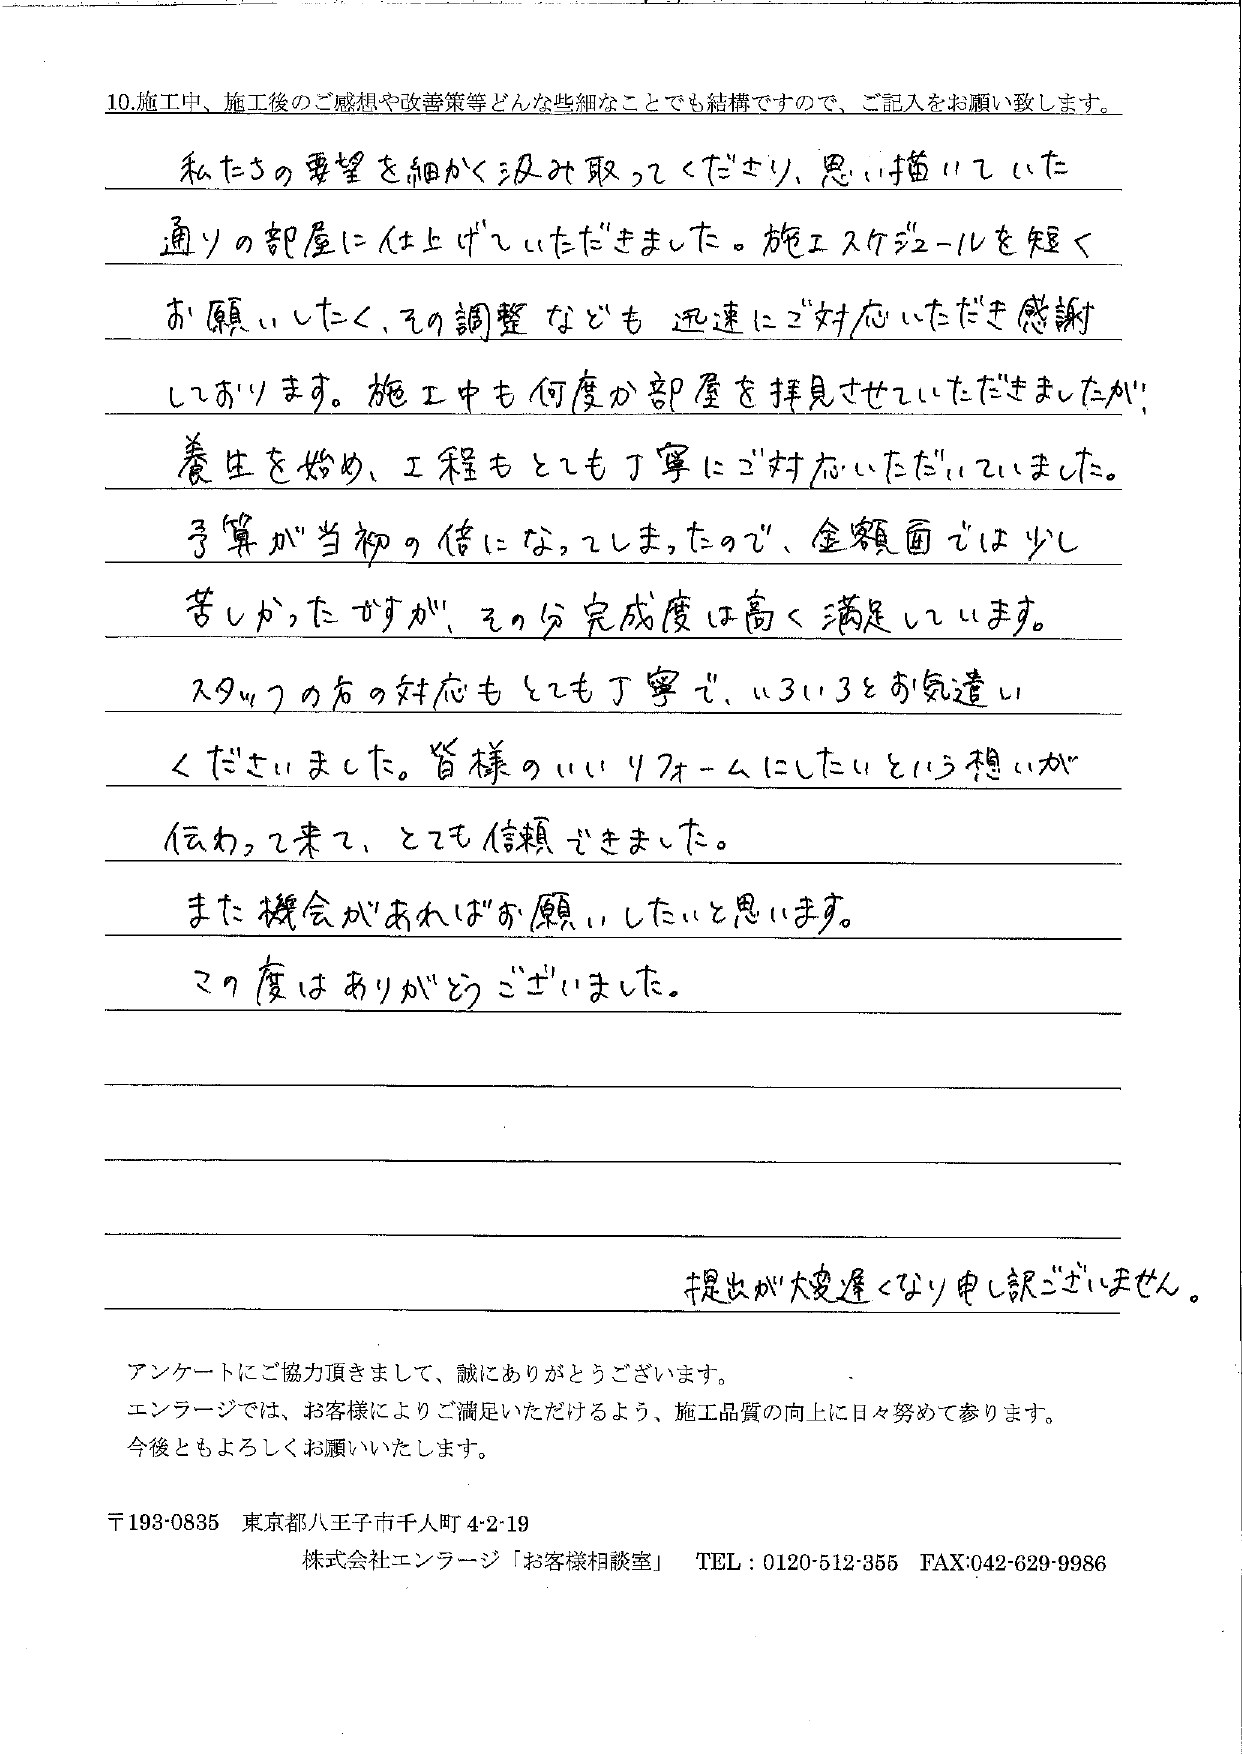 10.施工中、施工後のご感想や改善策等どんな些細なことでも結構ですので、ご記入をお願い致します。
私たちの要望を細かく汲み取ってくださり、思い描いていた
通りの部屋に仕上げていただきました。施工スケジュールを短く
お願いしたく、その調整なども迅速にご対応いただき感謝
しております。施工中も何度か部屋を拝見させていただきましたが、
養生を始め、工程もとても丁寧にご対応いただいていました。
予算が当初の倍になってしまったので、金額面では少し
苦しかったですが、その分完成度は高く満足しています。
スタッフの方の対応もとても丁寧で、いろいろとお気遣い
くださいました。皆様のいいリフォームにしたいという想いが
伝わって来て、とても信頼できました。
また機会があればお願いしたいと思います。
この度はありがとうございました。
提出が大変遅くなり申し訳ございません。
アンケートにご協力頂きまして、誠にありがとうございます。
エンラージでは、お客様によりご満足いただけるよう、施工品質の向上に日々努めて参ります。
今後ともよろしくお願いいたします。
〒193-0835 東京都八王子市千人町 4-2-19
株式会社エンラージ「お客様相談室」 TEL：0120-512-355 FAX:042-629-9986